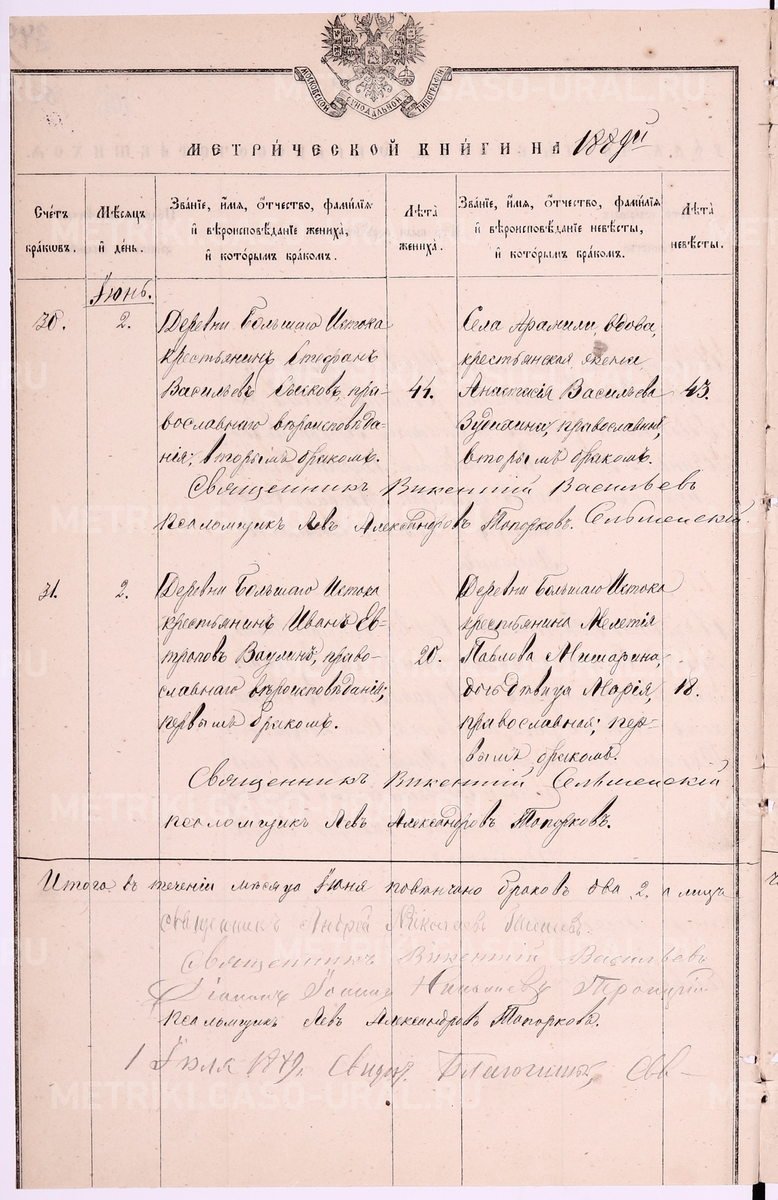 МОСКОВСКОЙ СѴНОДАЛЬНОЙ ТИПОГРАФІИ
МЕТРИ́ЧЕСКОЙ КНИ́ГИ НА
Сче́тъ бра́кωвъ.
Мѣ́сяцъ и҆ де́нь.
Зва́нїе, и҆́мя, ѻ҆́тчество, фами́лїя и҆ вѣроисповѣ́данїе жениха̀, и҆ кото́рымъ бра́комъ.
Лѣ́та жениха̀.
Зва́нїе, и҆́мя, ѻ҆́тчество, фами́лїя и҆ вѣроисповѣ́данїе невѣ́сты, и҆ кото́рымъ бра́комъ.
Лѣ́та невѣ́сты.
Іюнь.
30.
2.
Деревни Большаго Истока
крестьянинъ Стефанъ
Васильевъ, пра-
вославнаго вѣроисповѣда-
нія; вторымъ бракомъ.
44.
Села Арамили, вдова,
крестьянская жена
Анастасія Васильева
православная,
вторымъ бракомъ.
43.
Священникъ Викентій Васильевъ
псаломщикъ Левъ Александровъ Топорковъ.
31.
2.
Деревни Большаго Истока
крестьянинъ Иванъ Ев-
троповъ Ваулинъ, право-
славнаго вѣроисповѣданія;
первымъ бракомъ.
20.
Деревни Большаго Истока
крестьянина Мелетія
Павлова Мишарина,
дочь дѣвица Марія,
православная; пер-
вымъ бракомъ.
18.
Священникъ Викентій
псаломщикъ Левъ Александровъ Топорковъ.
Итого въ теченіи мѣсяца Іюня повѣнчано браковъ два 2. а лицъ
священникъ Андрей Николаевъ
Священникъ Викентій Васильевъ
Діаконъ Іоаннъ Троицкій
псаломщикъ Левъ Александровъ Топорковъ.
1 Іюля
METRIKI.GASO-URAL.RU